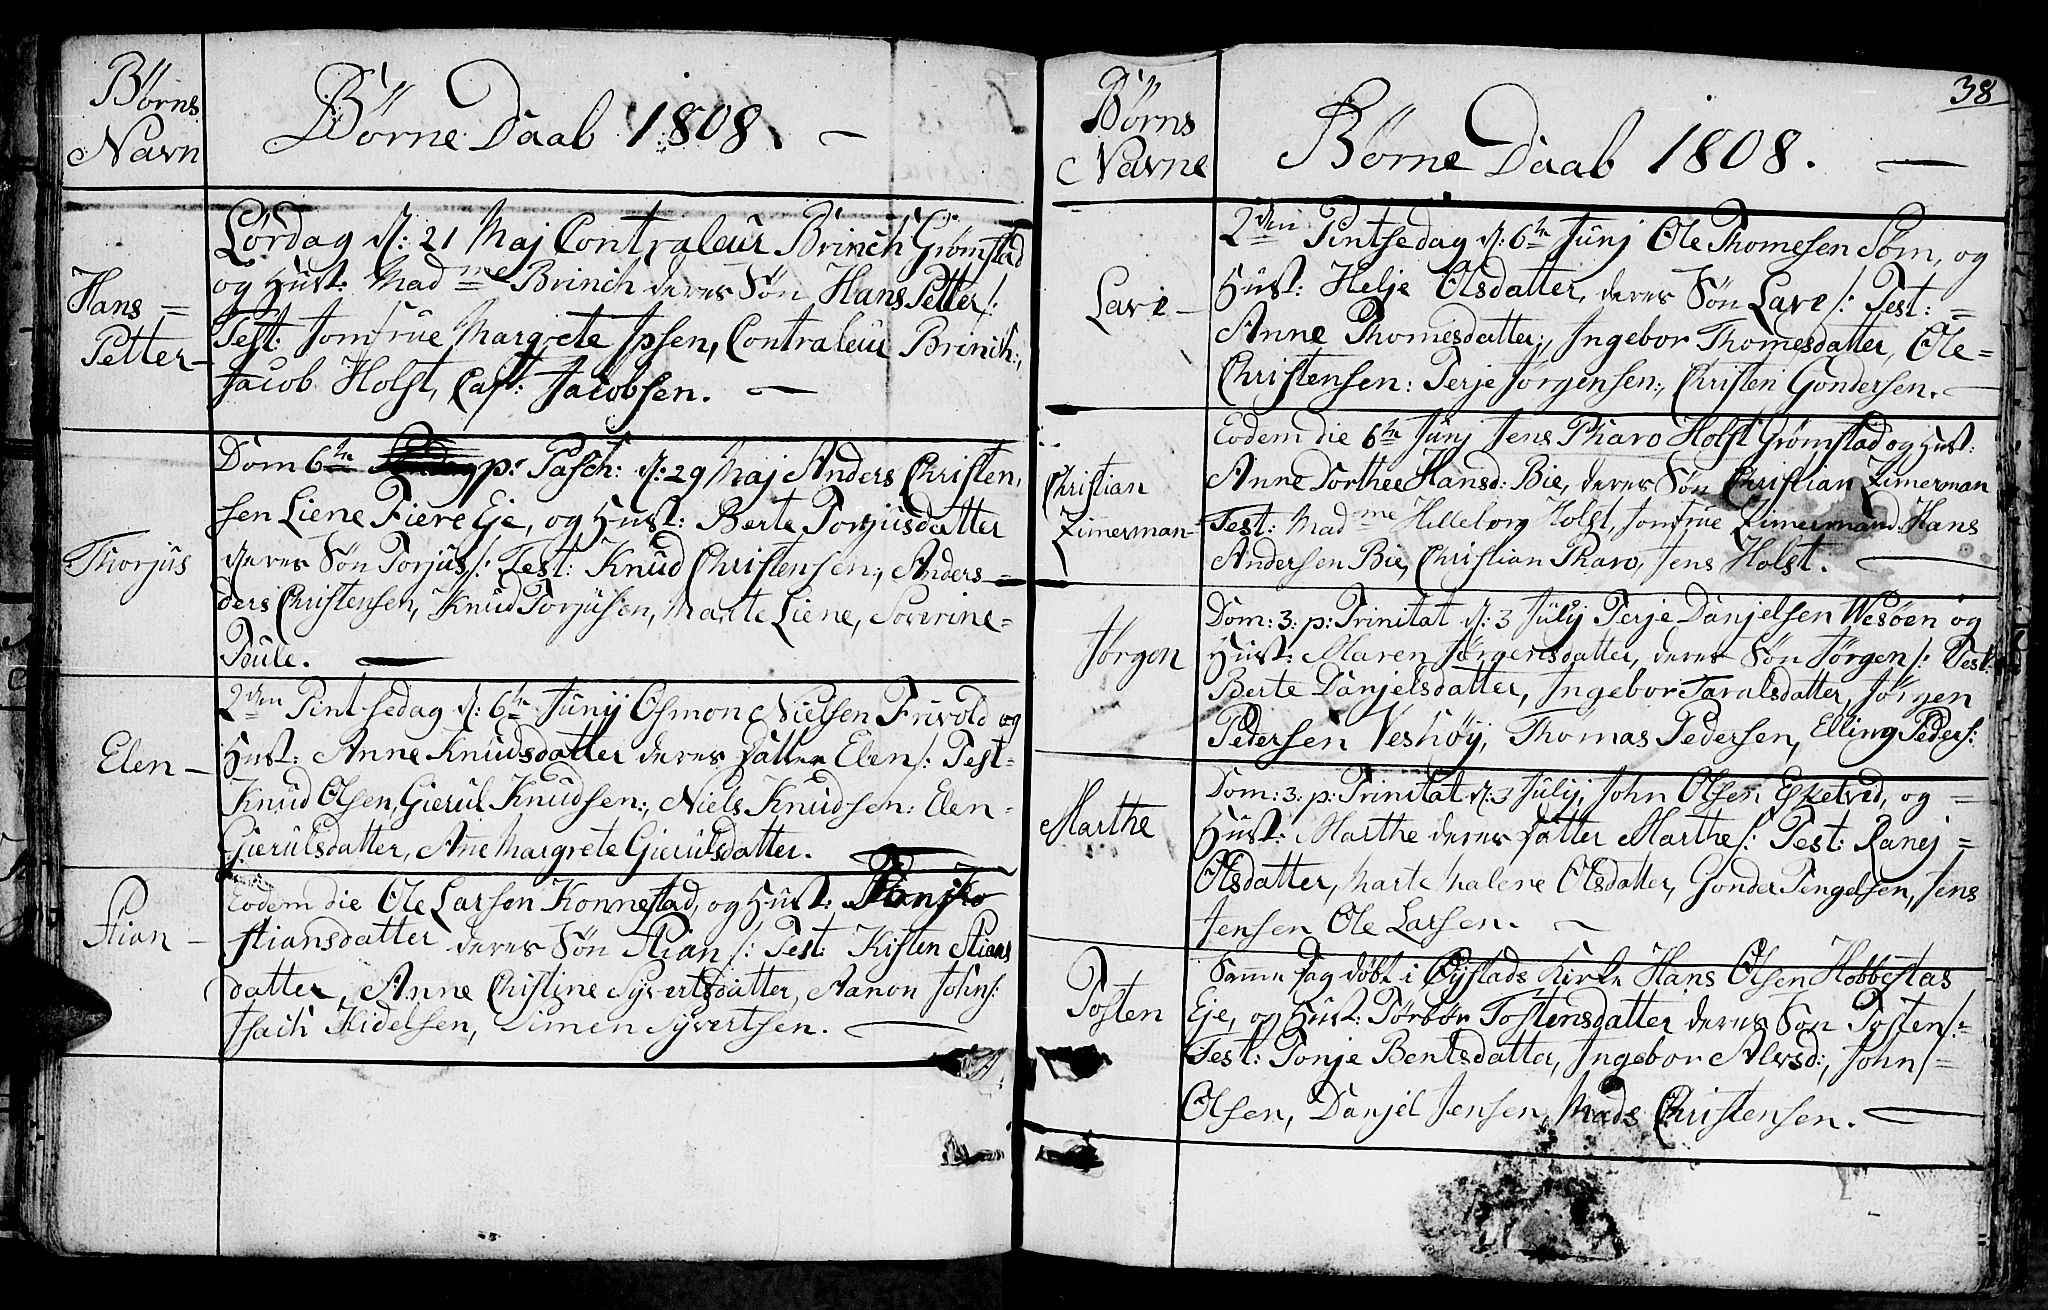 Børns
Navn
Børne Daab 1808. —
Hans =
Petter —
Lørdag d: 21 Maj Contraleur Brinch Grømstad
og Hust: Mad me Brinch deres Søn Hans Petter /:
Test: Jomfrue Margrete Ipsen, Contraleur Brinch:,
Jacob Holst, Capt: Jacobsen. —
Thorjus
Dom 6te p: Pasch: d: 29 Maj Anders Christen,
sen Liene Fiere Eje, og Hust: Berte Torjusdatter
deres Søn Torjus /: Test: Knud Christensen:, Anders =
ders Christensen, Knud Torjusen, Marte Liene, Soverine =
Paule. —
Elen —
2den Pintsedag d: 6te Junij Osmon Nielsen Fuvold og
Hust: Anne Knudsdatter deres Datter Elen /: Test =
Knud Olsen, Gierul Knudsen:, Niels Knudsen: Elen =
Gierulsdatter, Ane Margrete Gierulsdatter. —
Stian —
Eodem die Ole Larsen Konnestad, og Hust:
Stiansdatter deres Søn Stian /: Test: Kisten Stians
datter, Anne Christine Syvertsdatter, Aanon Johns:
Isach Kidelsen, Simen Syvertsen. —
38
Børns
Navne
Børne Daab 1808. —
Lave —
2den Pintsedag d: 6te Junj Ole Thomesen Søm, og
Hust: Helje Olsdatter, deres Søn Lave /: Test: =
Anne Thomesdatter:, Ingebor Thomesdatter, Ole =
Christensen: Terje Jørgensen:, Christen Gondersen. —
Christian
Zimerman —
Eodem die 6te Junj Jens Pharo Holst Grømstad og Hust:
Anne Dorthee Hansd: Bie, deres Søn Christian Zimerman
Test: Mad me Hilleborg Holst, Jomfrue Zimermand: Hans
Andersen Bie, Christian Pharo, Jens Holst. —
Jørgen
Dom: 3: p: Trinitat d: 3 Julij Terje Danjelsen Wesøen og
Hust: Maren Jørgensdatter, deres Søn Jørgen /: Test:
Berte Danjelsdatter, Ingebor Taralsdatter, Jørgen
Pedersen Veshøy, Thomas Pedersen, Elling Peders:
Marthe
Dom: 3: p: Trinitat d: 3 Julij, John Olsen Egketved, og =
Hust: Marthe deres Datter Marthe /: Test: Ranej =
Olsdatter, Marte Malene Olsdatter, Gonder Tengelsen, Jens
Jensen Ole Larsen. —
Tosten
Samme Dag døbt i Øystads Kirke Hans Olsen Hobbestas
Eje, og Hust: Torbør Tostensdatter deres Søn Tosten /: =
Test: Tonje Bentsdatter, Ingebor Alvsd:, John =
Olsen, Danjel Jensen, Mads Christensen. —